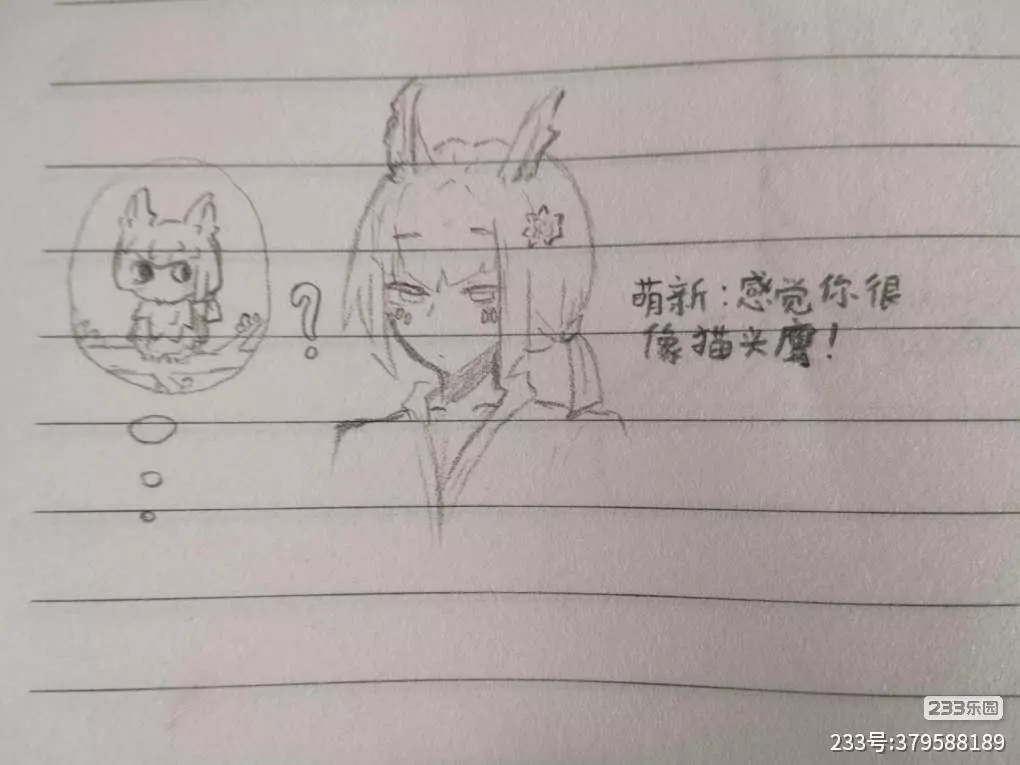 ?
萌新：感觉你很
像猫头鹰！
233乐园
233号:379588189